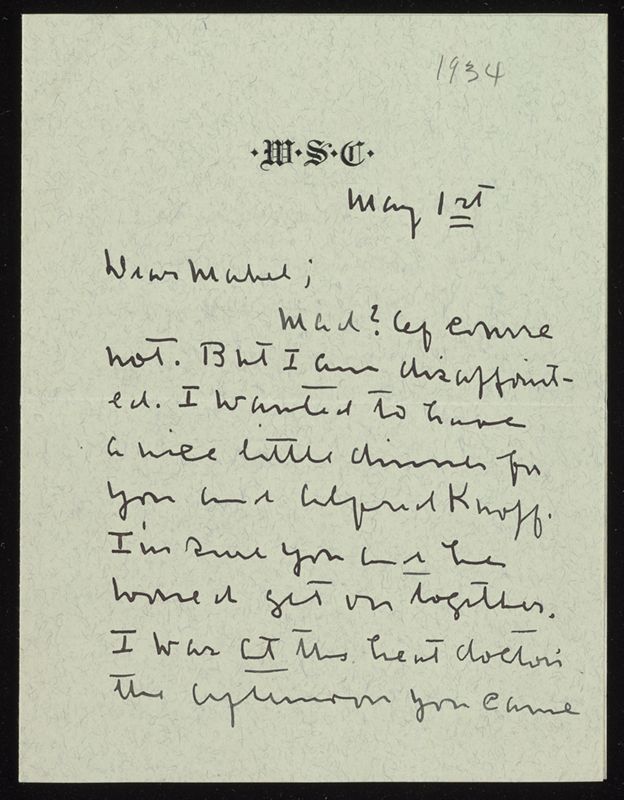 1934
·W·S·C·
May 1st
Dear Mabel;
Mad? Of course
not. But I am disappoint-
ed. I wanted to have
a nice little dinner for
you and Alfred Knopf.
I'm sure you and he
would get on together.
I was at the heat doctor's
the afternoon you came